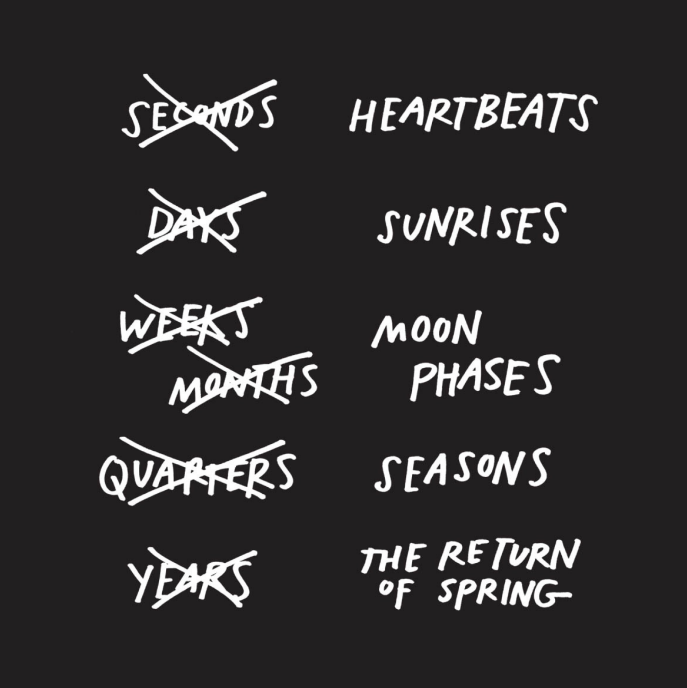 SECONDS HEARTBEATS
DAYS SUNRISES
WEEKS MOON
MONTHS PHASES
QUARTERS SEASONS
YEARS THE RETURN
OF SPRING